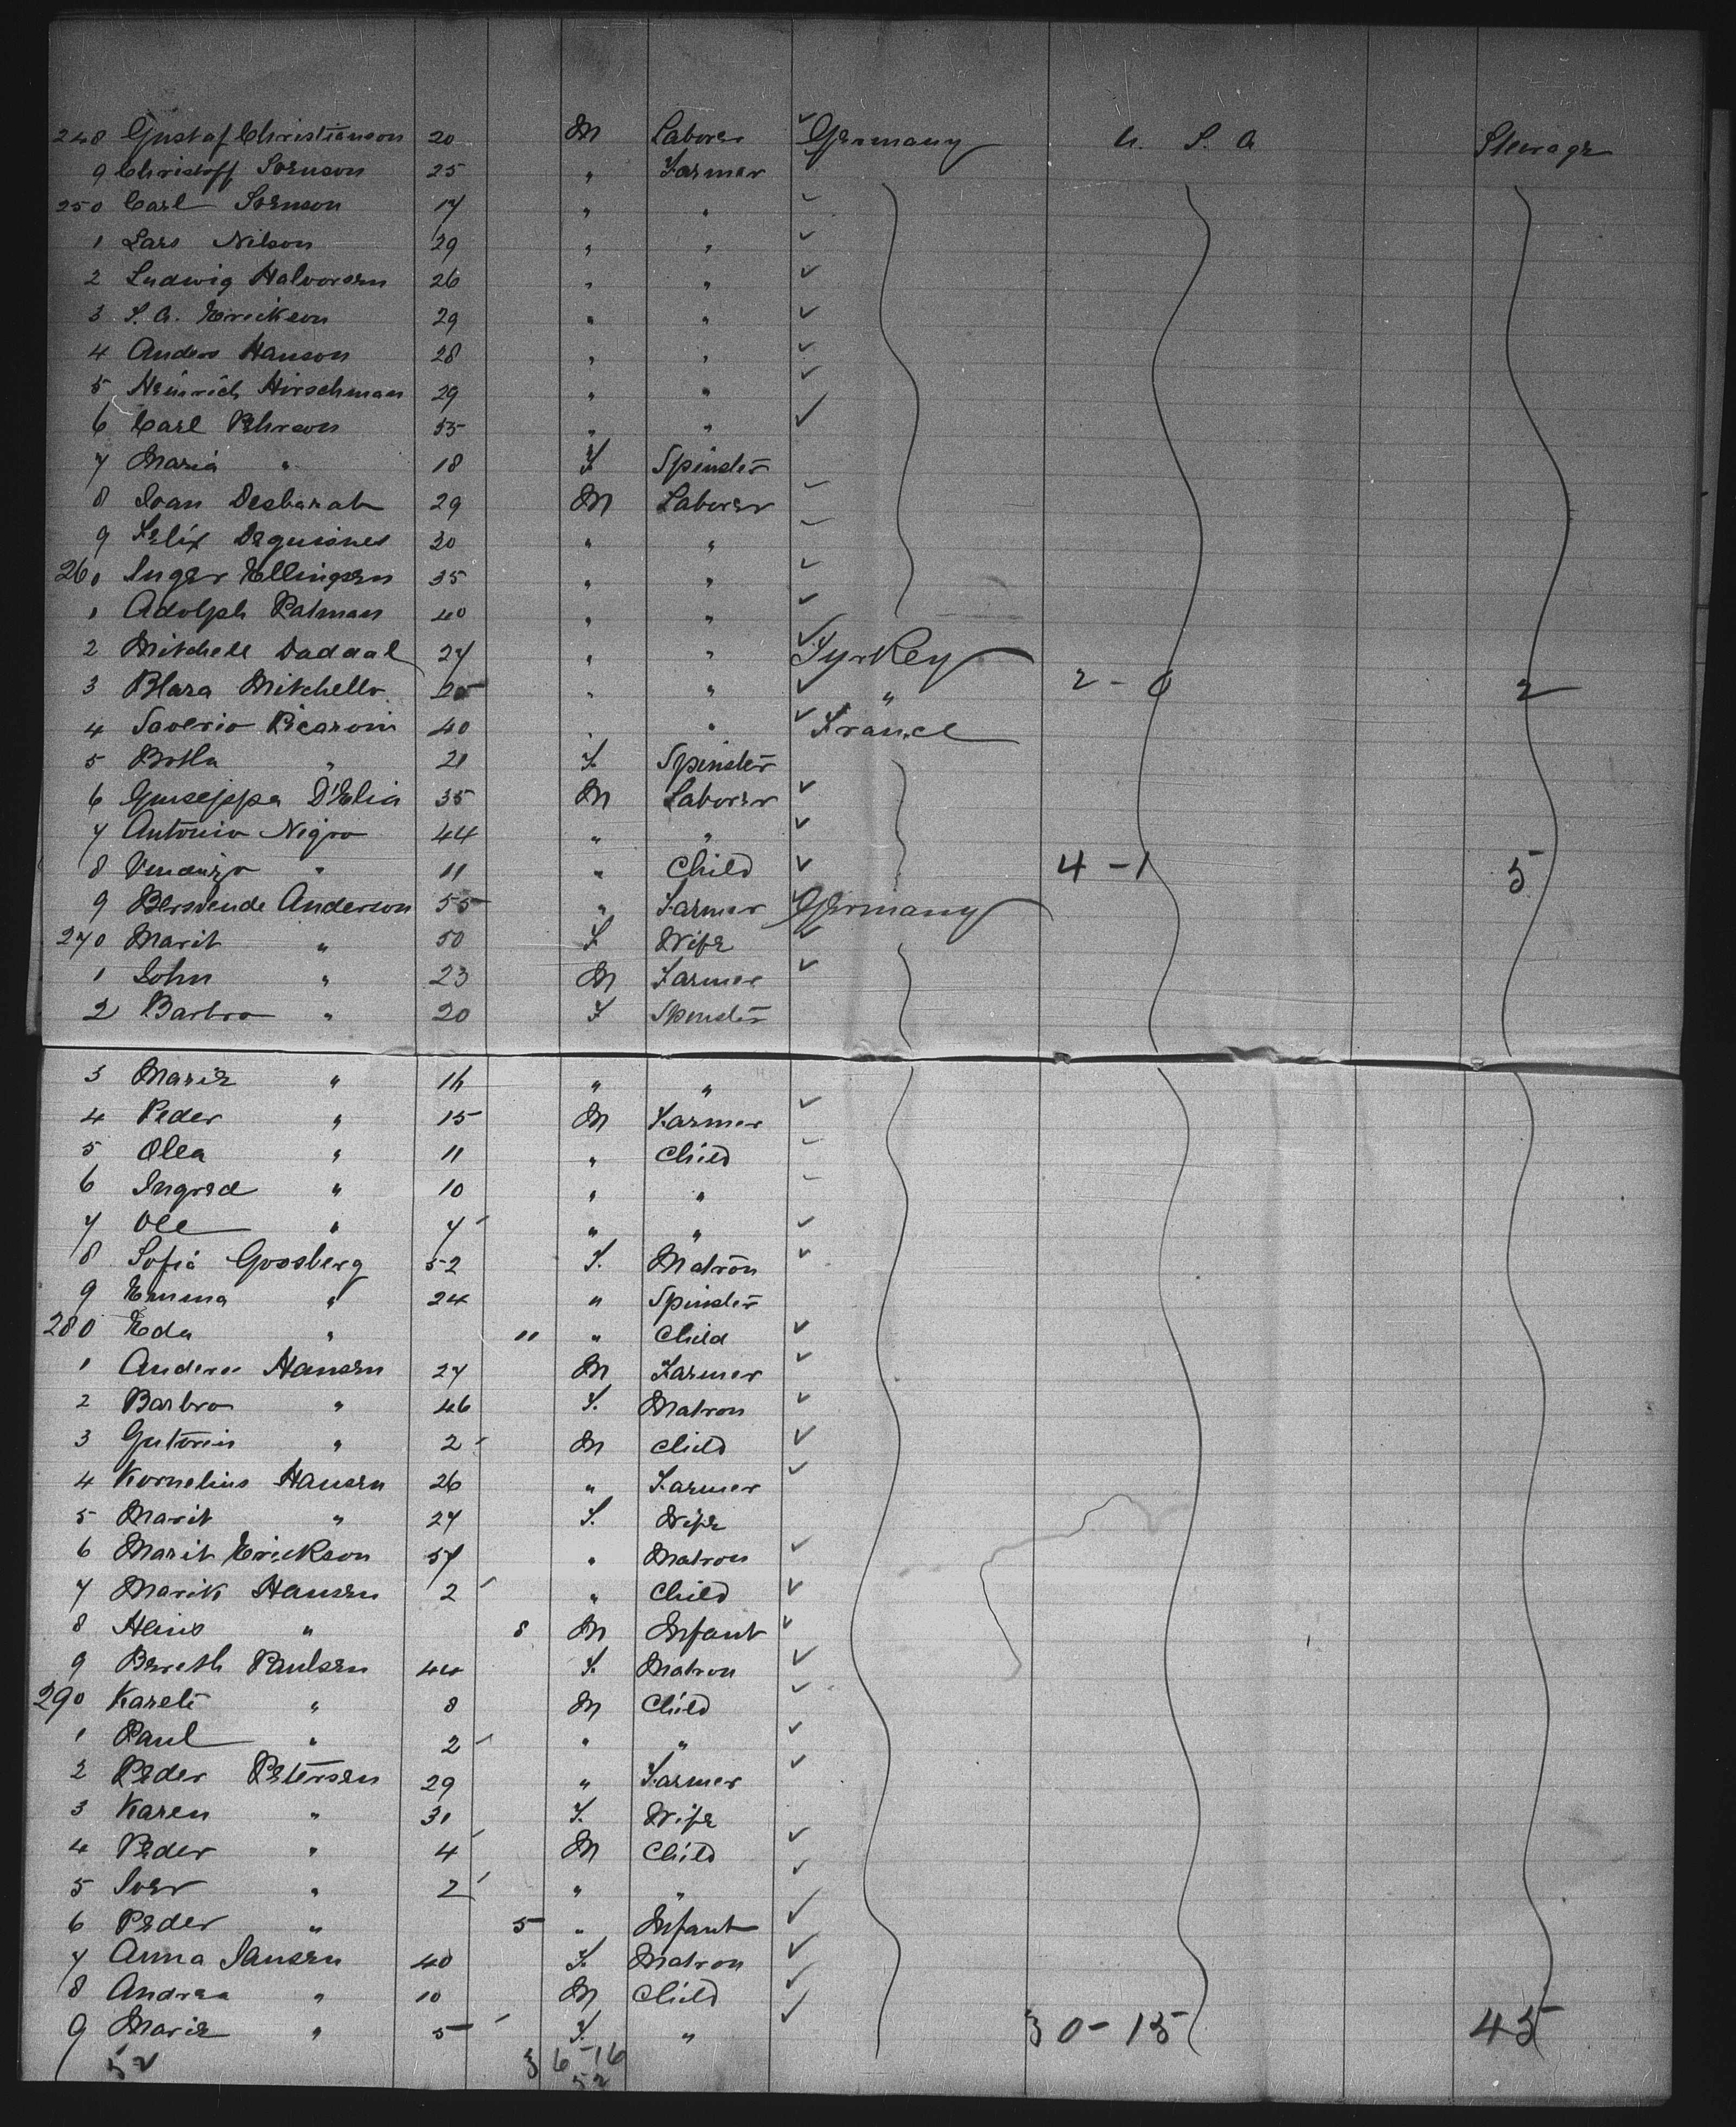 248 Gustaf Christianson 20 M Laborer ✓ Germany U. S. A Steerage
9 Christoff Sörnson 25 " Farmer
250 Carl Sörnson 17 " " ✓
1 Lars Nilson 29 " " ✓
2 Ludwig Halvorsen 26 " " ✓
3 S. A. Erickson 29 " " ✓
4 Anders Hanson 28 " " ✓
5 Heinrich Hirschman 29 " " ✓
6 Carl Pehrson 55 " " ✓
7 Maria " 18 F Spinster
8 Joan Desbarat 29 M Laborer ✓
9 Felix Deguisnes 30 " " ✓
260 Inger Ellingsen 35 " " ✓
1 Adolph Patman 40 " " ✓
2 Mitchell Daddal 27 " " ✓ Tyrkey
3 Blara Mitchello 25 " " ✓ " 2 - 0 2
4 Saverio Picaroni 40 " " ✓ France
5 " 21 F. Spinster
6 Guiseppa D'Elia 35 M Laborer ✓
7 Antonio Negro 44 " " ✓
8 " 11 " Child ✓ 4 - 1 5
9 Anderson 55 " Farmer Germany
270 Marit " 50 F Wife ✓
1 John " 23 M Farmer ✓
2 Barbro " 20 F Spinster
3 Marie " 16 " "
4 Peder " 15 M Farmer ✓
5 Olea " 11 " Child ✓
6 Ingred " 10 " " ✓
7 Ole " 7 " " ✓
8 Sofia Goosberg 52 F. Matron ✓
9 Emma " 24 " Spinster
280 Eda " 11 " Child ✓
1 Anders Hansen 27 M Farmer ✓
2 Barbro " 46 F. Matron ✓
3 " 2 M Child ✓
4 Kornelius Hansen 26 " Farmer ✓
5 Marit " 27 F. Wife
6 Marit Erickson 57 " Matron ✓
7 Marik Hansen 2 " Child ✓
8 Heins " 8 M Infant ✓
9 Bereth Paulsen 44 F. Matron ✓
290 " 8 M Child ✓
1 Paul " 2 " " ✓
2 Peder Petersen 29 " Farmer ✓
3 Karen " 31 F. Wife
4 Peder " 4 M Child ✓
5 Iver " 2 " " ✓
6 Peder " 5 " Infant ✓
7 Anna Jansen 40 F. Matron ✓
8 Andrea " 10 M Child ✓
9 Marie " 5 F. " ✓ 30 - 15 45
52 36 - 16
52